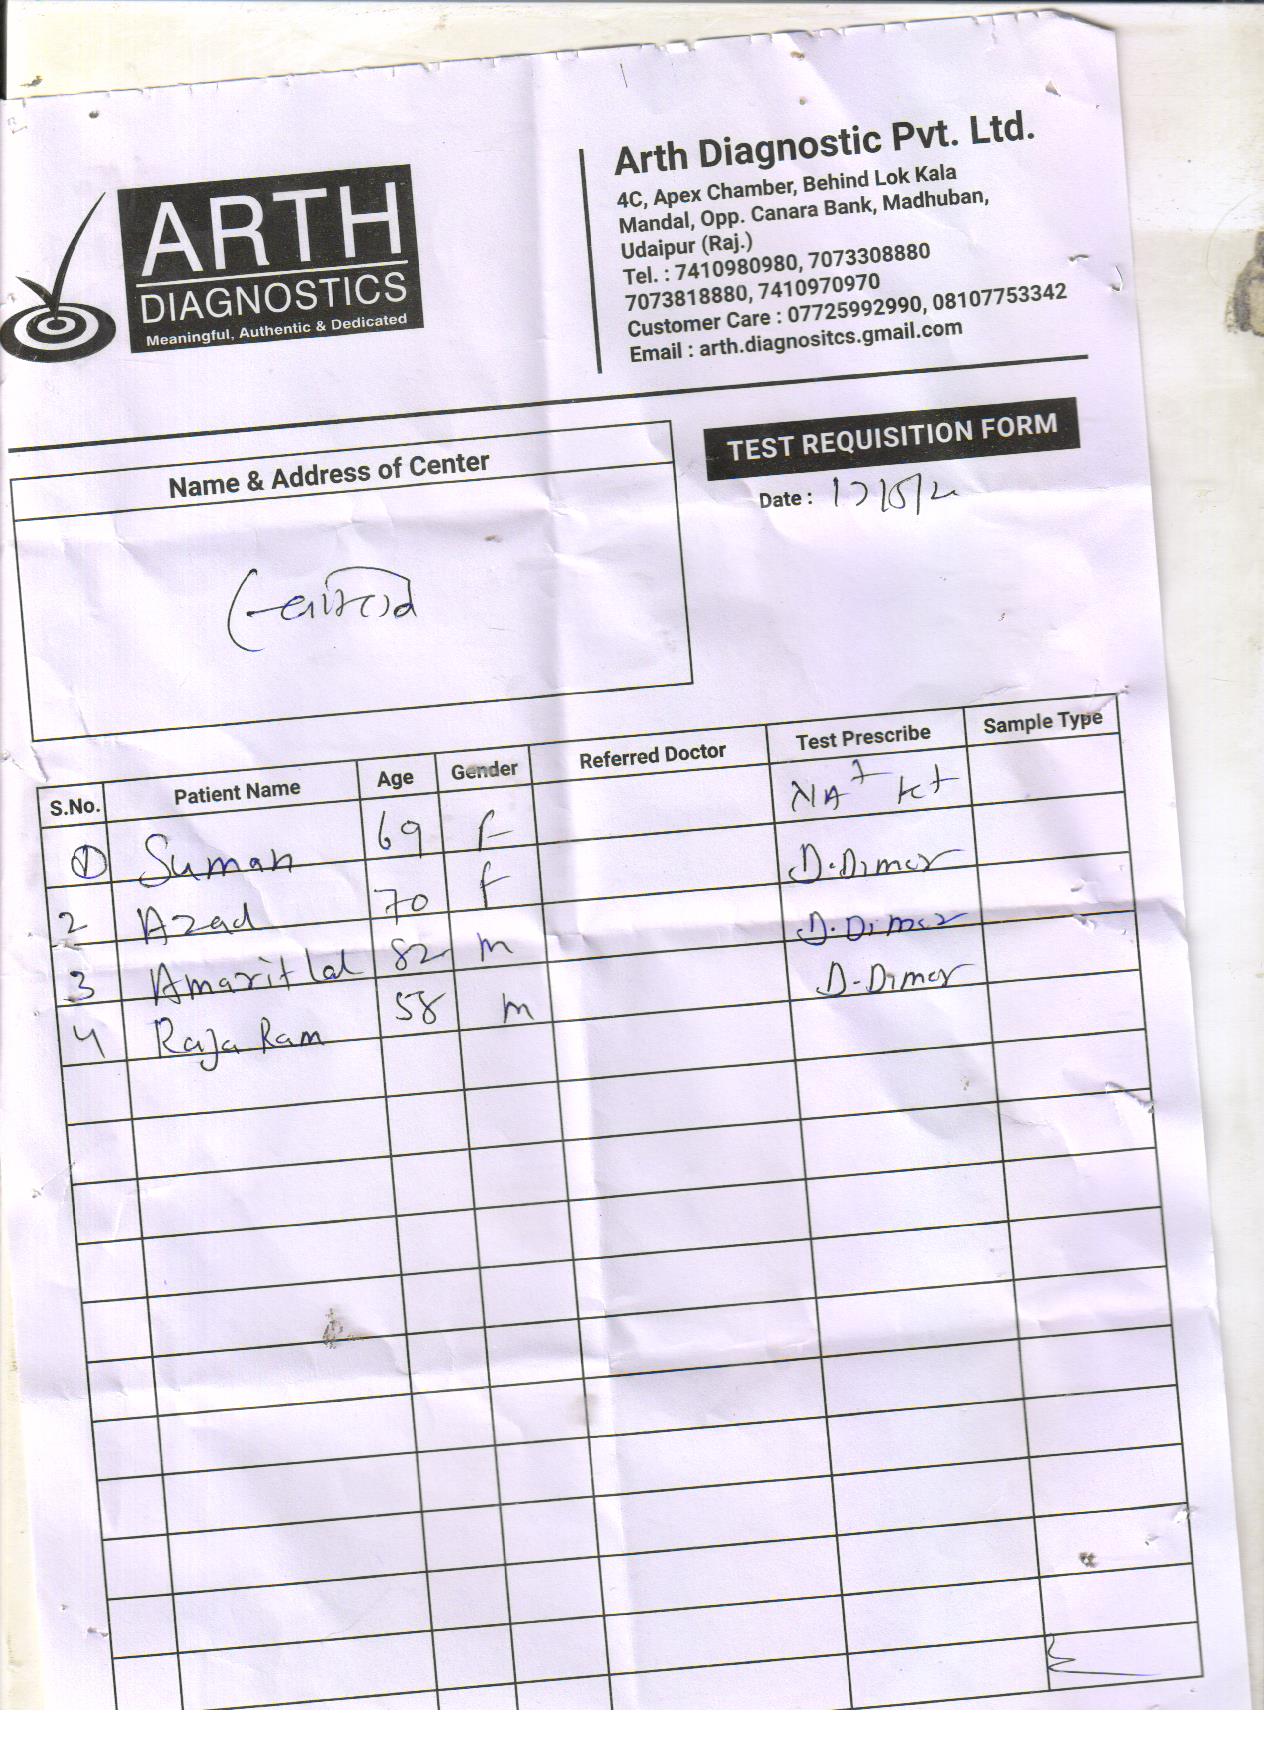 ARTH
DIAGNOSTICS
Meaningful, Authentic & Dedicated
Arth Diagnostic Pvt. Ltd.
4C, Apex Chamber, Behind Lok Kala
Mandal, Opp. Canara Bank, Madhuban,
Udaipur (Raj.)
Tel. : 7410980980, 7073308880
7073818880, 7410970970
Customer Care : 07725992990, 08107753342
Email : arth.diagnositcs.gmail.com
Name & Address of Center
TEST REQUISITION FORM
Date :
S.No. Patient Name Age Gender Referred Doctor Test Prescribe Sample Type
1 Suman 69 F
2 Azad 70 F D.Dimer
3 Amarit lal 82 m D.Dimer
4 Raja Ram 58 m D-Dimer